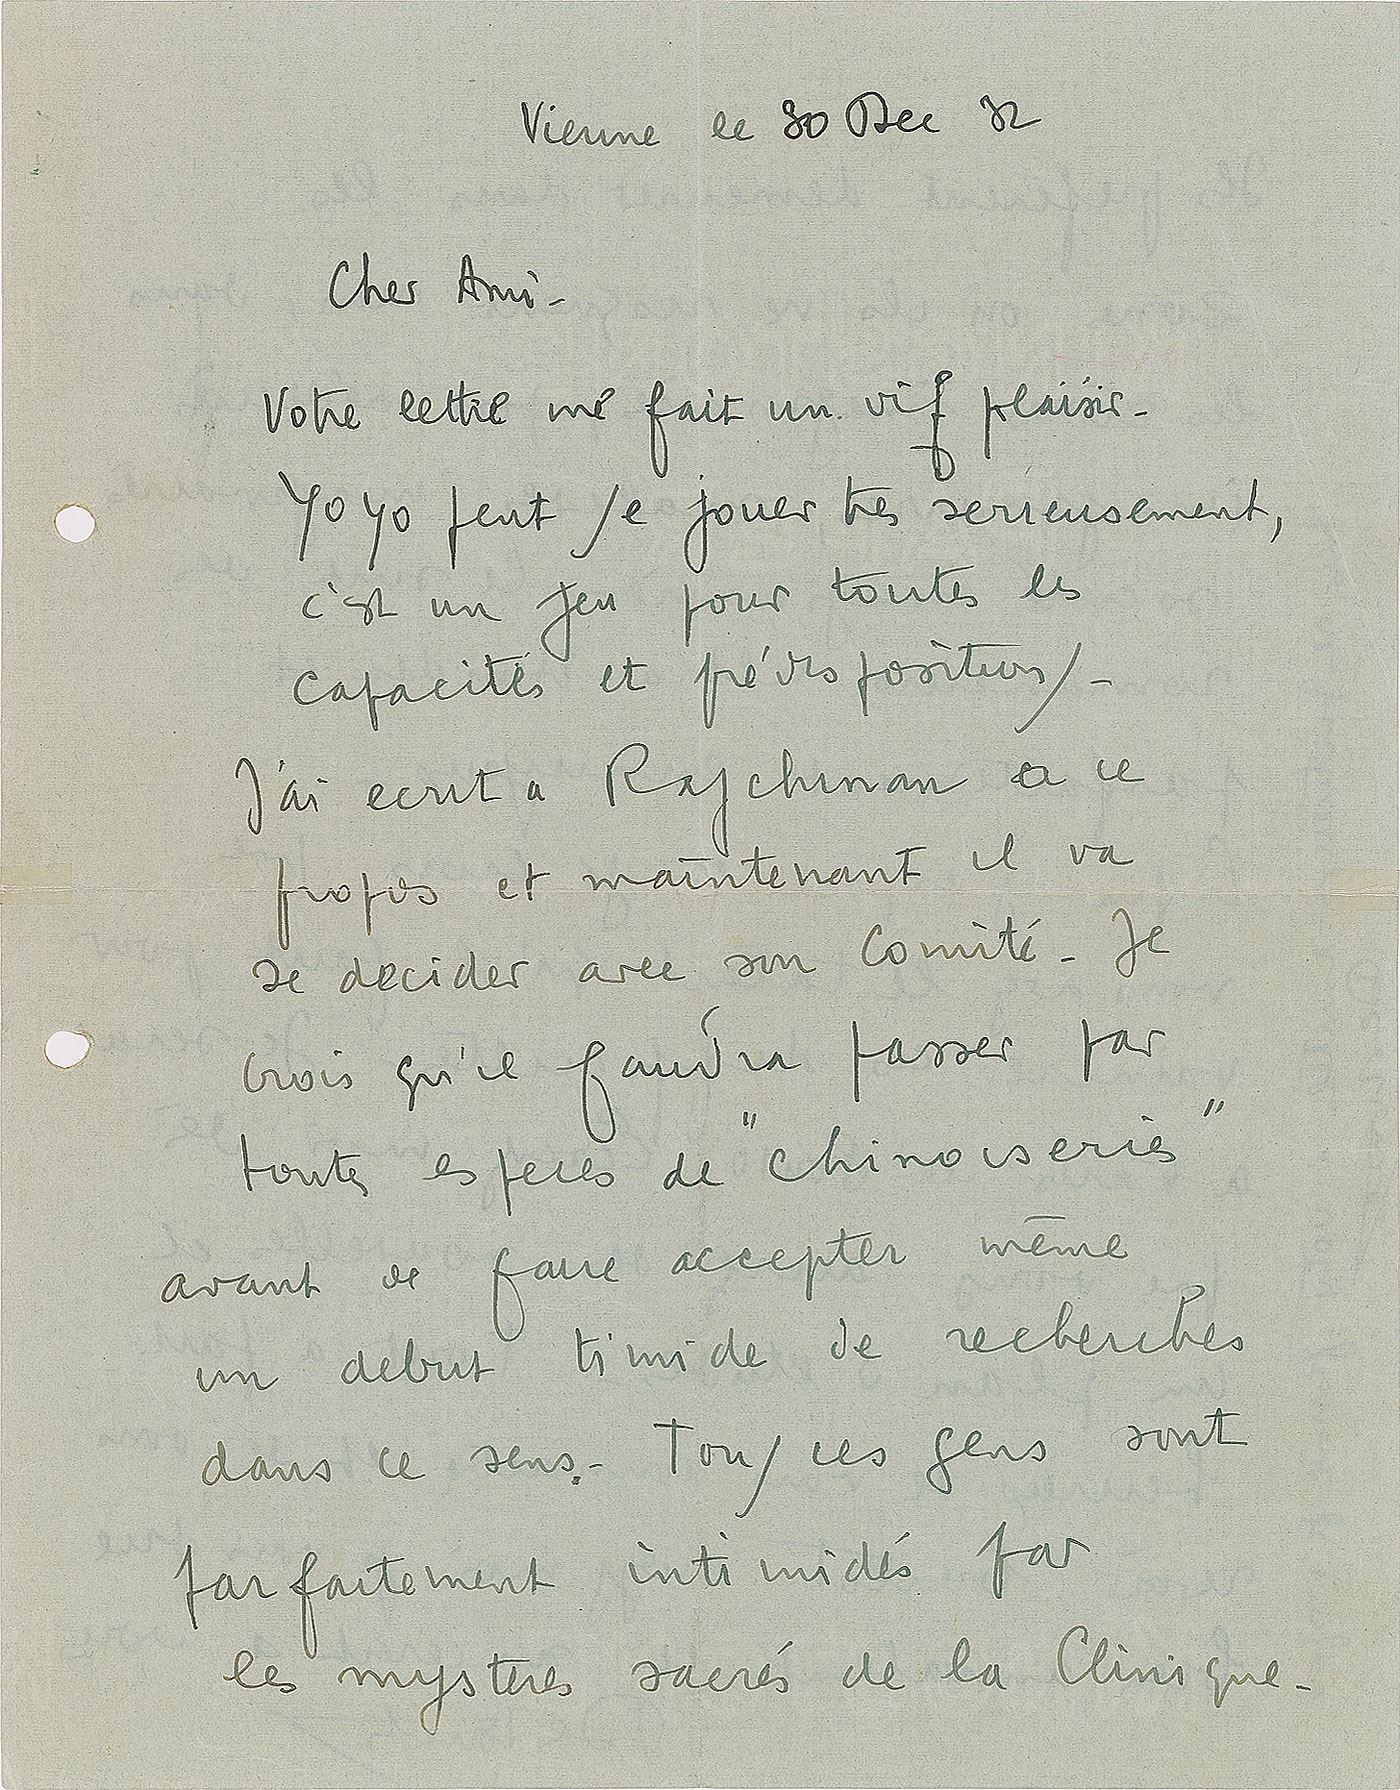 Vienne le 30 Dec 32
Cher Ami-
Votre lettre me fait un vif plaisir-
Yo yo peut se jouer tres serieusement,
c'est un jeu pour toutes les
capacités et prédispositions-
J'ai ecrit a Rajchman a ce
propos et maintenant il va
se decider avec son Comité- Je
crois qu'il faudra passer par
toutes especes de "chinoiseries"
avant de faire accepter même
un debut timide de recherches
dans ce sens.- Tous ces gens sont
parfaitement intimidés par
les mysteres sacrés de la Clinique-